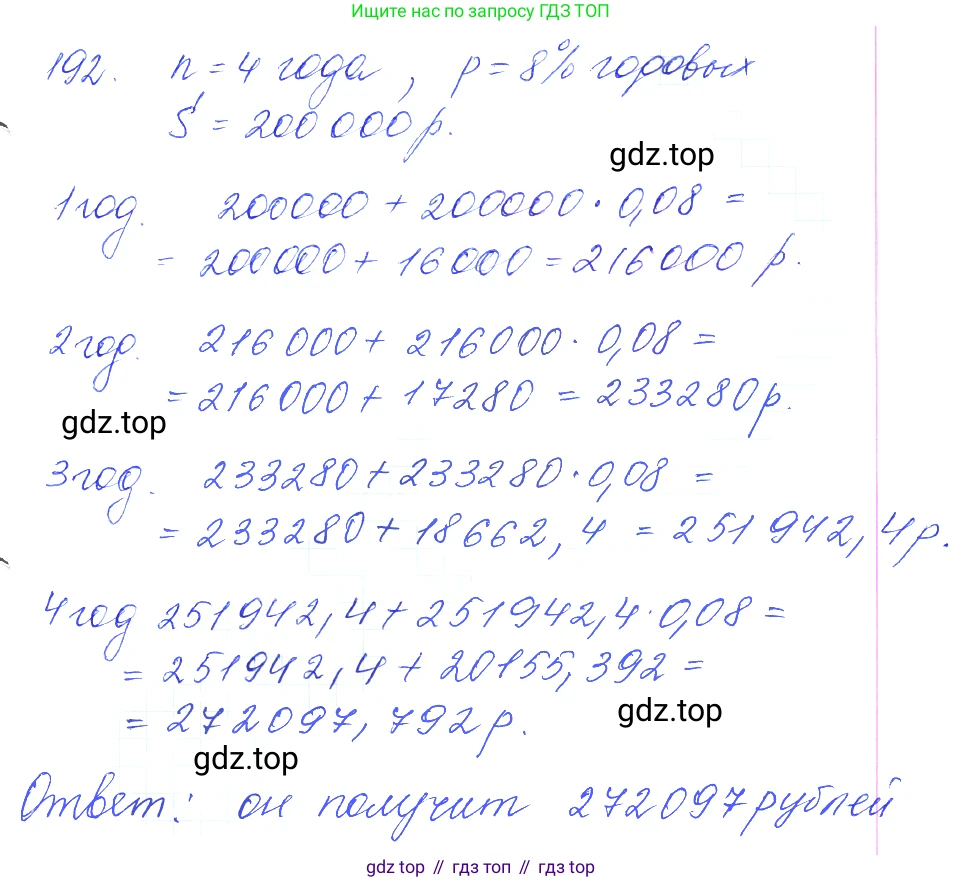 Ищите нас по запросу ГДЗ ТОП
192. n = 4 года, p = 8% годовых
S = 200 000 р.
gdz.top
1 год. 200000 + 200000 · 0,08 =
= 200000 + 16000 = 216000 р.
2 год. 216 000 + 216000 · 0,08 =
= 216000 + 17280 = 233280 р.
gdz.top
3 год. 233280 + 233280 · 0,08 =
= 233280 + 18662,4 = 251 942,4 р.
4 год 251942,4 + 251942,4 · 0,08 =
= 251942,4 + 20155,392 =
= 272097,792 р.
gdz.top
gdz.top
Ответ: он получит 272097 рублей
gdz top // гдз топ // gdz top